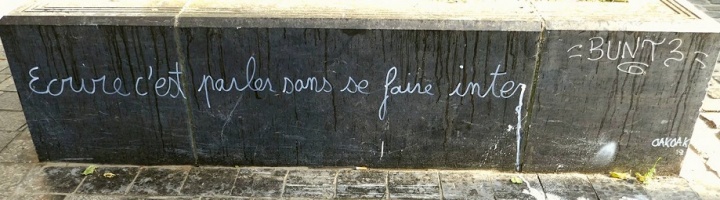 Ecrire c'est parler sans se faire inter
BUNT3
OAKOAK